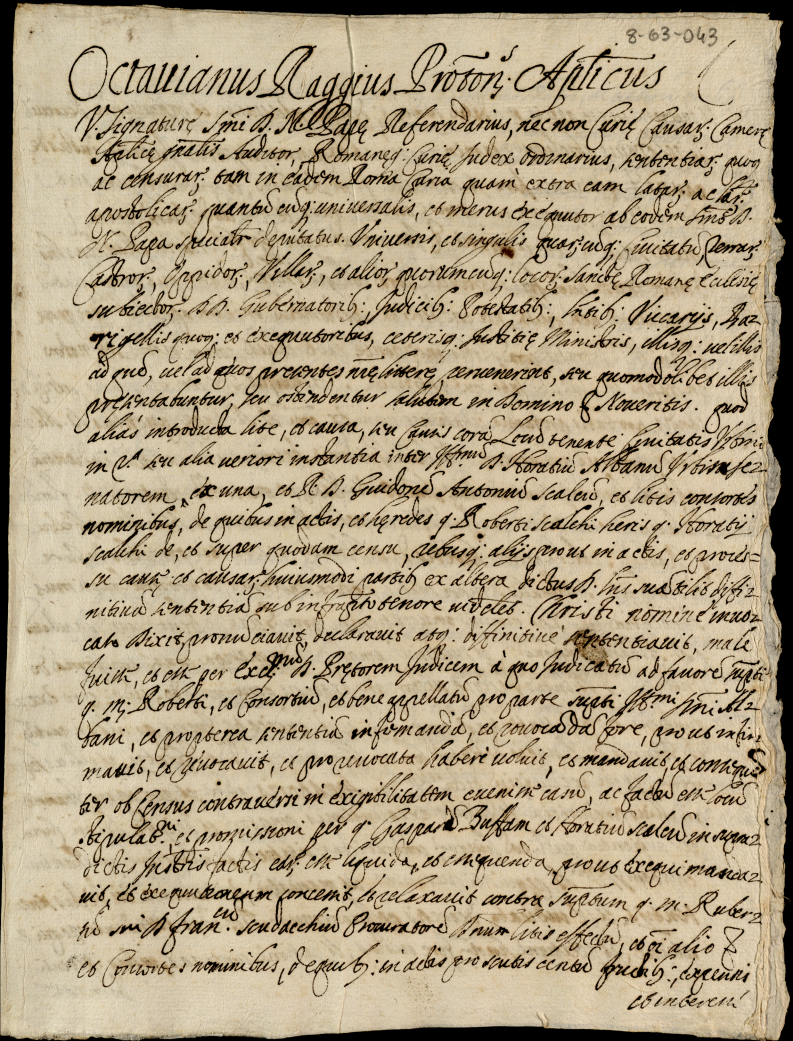 8-63-043
Octauianus Raggius Proton.s Aplicus
V. Signaturę Smi D. N. Papę Referendarius, nec non Curię Causar. Camerę
Aplicę gnalis Auditor, Romanęq: Curię Judex ordinarius, sententiar. quoq
ac censurar. tam in eadem Romā Curia quam extra eam latar. ac lrar.
apostolicar. quarumcuq: universalis, et merus exequutor ab eodem Smo D.
N. Papa specialr deputatus. Vniversis, et singulis quar.cuq: Civitatū, Terrar.
Castror., Oppidor., Villar., et alior. quorumcuq: locor. Sanctę Romanę Ecclesię
subiector. DD. Gubernatorib:, Judicib:, Potestatib:, Vicarijs, Bar
rigellis quoq: et exequutoribus, ceterisq: Justitię Ministris, illiq: vel illis
ad quē, vel ad quos presentes nrę litterę pervenerint, seu quomodolibet illis
presentabuntur, seu ostendentur salutem in Domino & Noveritis. quod
alias introducta lite, et causa, seu Causis corā Locū tenente Civitatis Vrbini
in 2.a seu alia veriori instantia inter D. Horatiū Albanū Vrbis Se-
natorem, ex una, et D. Guidonē Antoniū Scalcū, et litis consortes
nominibus, de quibus in actis, et hęredes q. Roberti Scalchi heris q. Horatij
Scalchi de, et super quodam censu, rebusq; alijs prout in actis, et proces-
su cause et causar. huiusmodi partib ex altera dictus D. sua tulit diffi-
nitivā sententiā sub infrapto tenore videlet. Christi nomine invo-
cato Dixit, pronunciavit, declaravit atq: diffinitive sententiavit, male
fuisse, et esse per D. Prętorem Judicem à quo Judicatū ad favorē supti
q. m. Roberti, et Consortiū, et bene appellatū pro parte supti Al-
bani, et propterea sententiā infirmandā, et revocādā fore, prout infir-
mavit, et revocavit, et pro revocata haberi voluit, et mandavit et conseque
ter ob Census controversi in exigibilitatem evenisse casū, ac factū esse locū
stipulat.ni et promissioni per q. Gasparē Buffam et Horatiū Scalcū in supra
dictis Instrtis factis eas. esse liquidā, et exequendā, prout exequi manda-
vit, et exequutionem concessit, et relaxavit contra suptum q. m. Ruber-
tū sive D. Fran.cū Scudacchiū Procuratorē litis effectū, et oi alio &
et Consortes nominibus, de quib: in actis pro scutis centū fructib:, expensis
et interesse